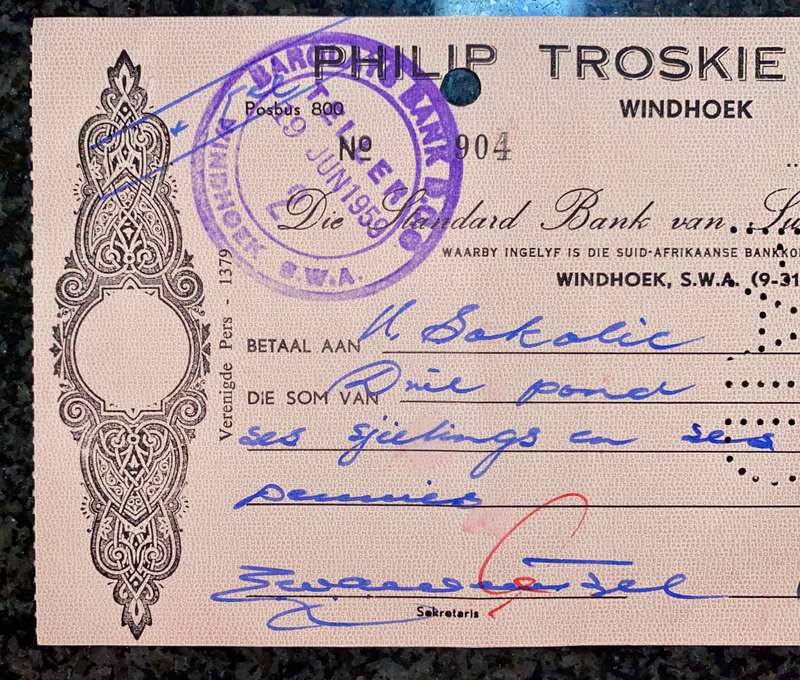 PHILIP TROSKIE
Posbus 800
WINDHOEK
BARCLAYS BANK D.C.O.
TELLER
19 JUN 1959
2
WINDHOEK S.W.A.
Nº 904
Die Standard Bank van Su
WAARBY INGELYF IS DIE SUID-AFRIKAANSE BANKKO
WINDHOEK, S.W.A. (9-31
Verenigde Pers - 1379
BETAAL AAN U. Sokolic
DIE SOM VAN Drie pond
ses sjielings en ses
pennies
Sekretaris